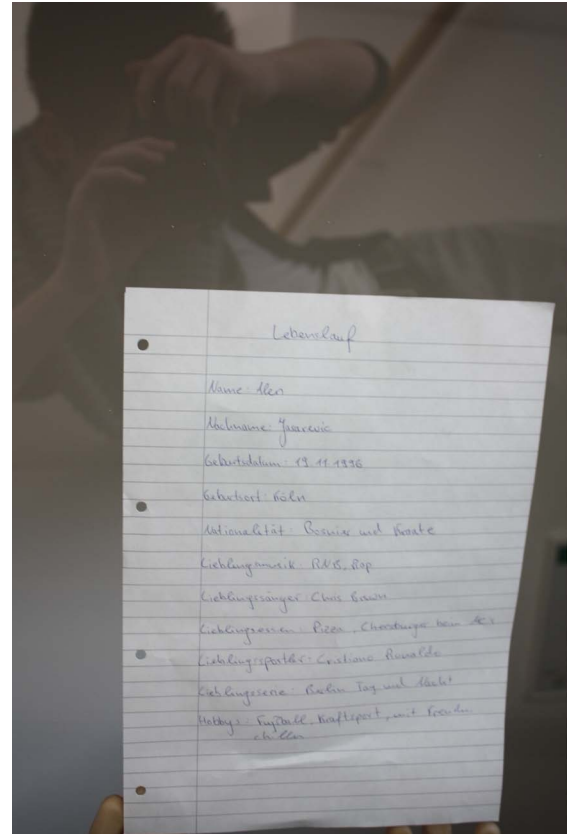 Lebenslauf
Name: Alen
Nachname: Jasarevic
Geburtsdatum: 19.11.1996
Geburtsort: Köln
Nationalität: Bosnier und Kroate
Lieblingsmusik: RNB, Rap
Lieblingssänger: Chris Brown
Lieblingsessen: Pizza, Cheeseburger beim Mc's
Lieblingssportler: Cristiano Ronaldo
Lieblingsserie: Berlin Tag und Nacht
Hobbys: Fußball, Kraftsport, mit Freunden
chillen